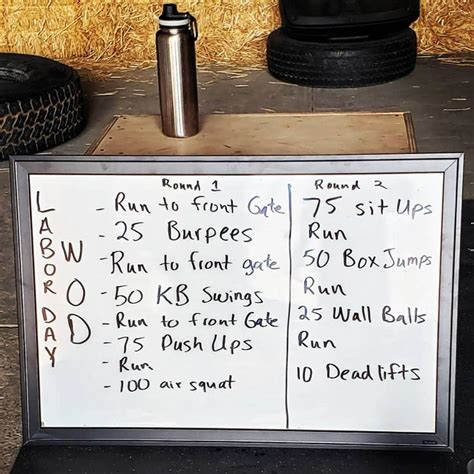 LABOR DAY
WOD
Round 1
- Run to front Gate
- 25 Burpees
- Run to front gate
- 50 KB Swings
- Run to front Gate
- 75 Push Ups
- Run
- 100 air squat
Round 2
75 sit Ups
Run
50 Box Jumps
Run
25 Wall Balls
Run
10 Deadlifts